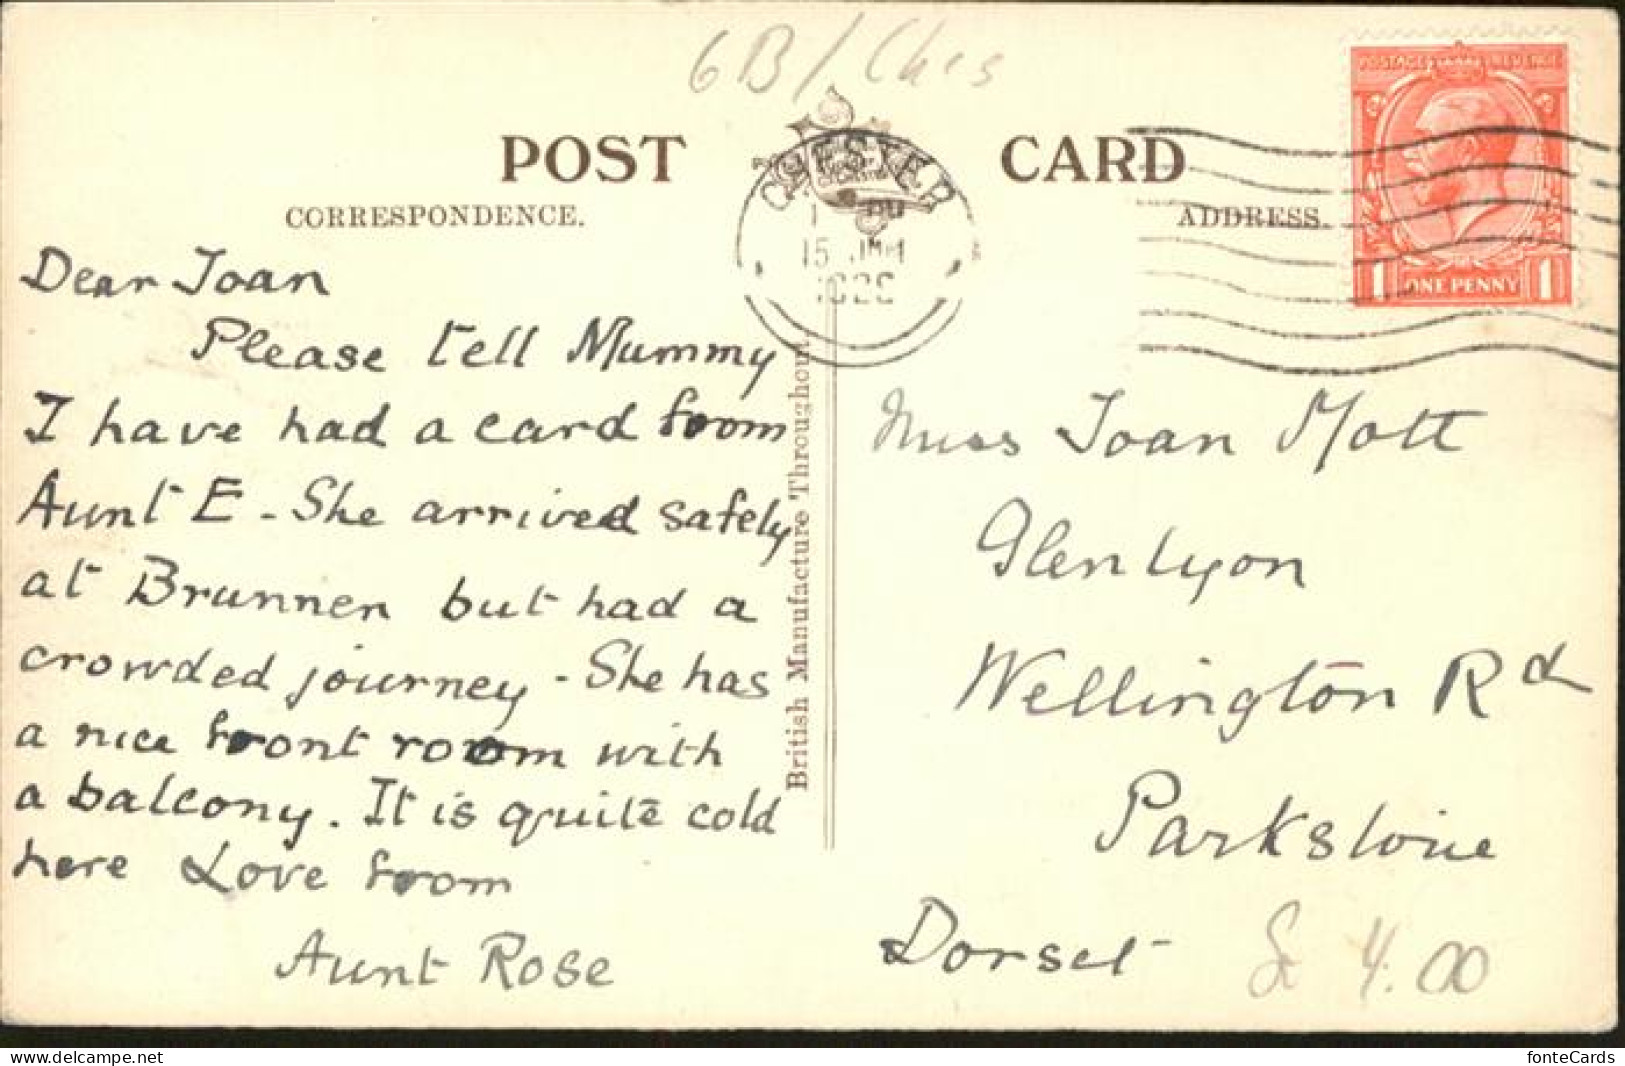 6B/Ches
POST CARD
CHESTER
15 JUN
POSTAGE REVENUE
1 ONE PENNY 1
CORRESPONDENCE.
ADDRESS.
Dear Joan
Please tell Mummy
I have had a card from
Aunt E - She arrived safely
at Brunnen but had a
crowded journey - She has
a nice front room with
a balcony. It is quite cold
here Love from
Aunt Rose
British Manufacture Throughout
Miss Joan Mott
Glenlyon
Wellington Rd
Parkstone
Dorset
4.00
Images are for reference only. Please read item description
fonteCards